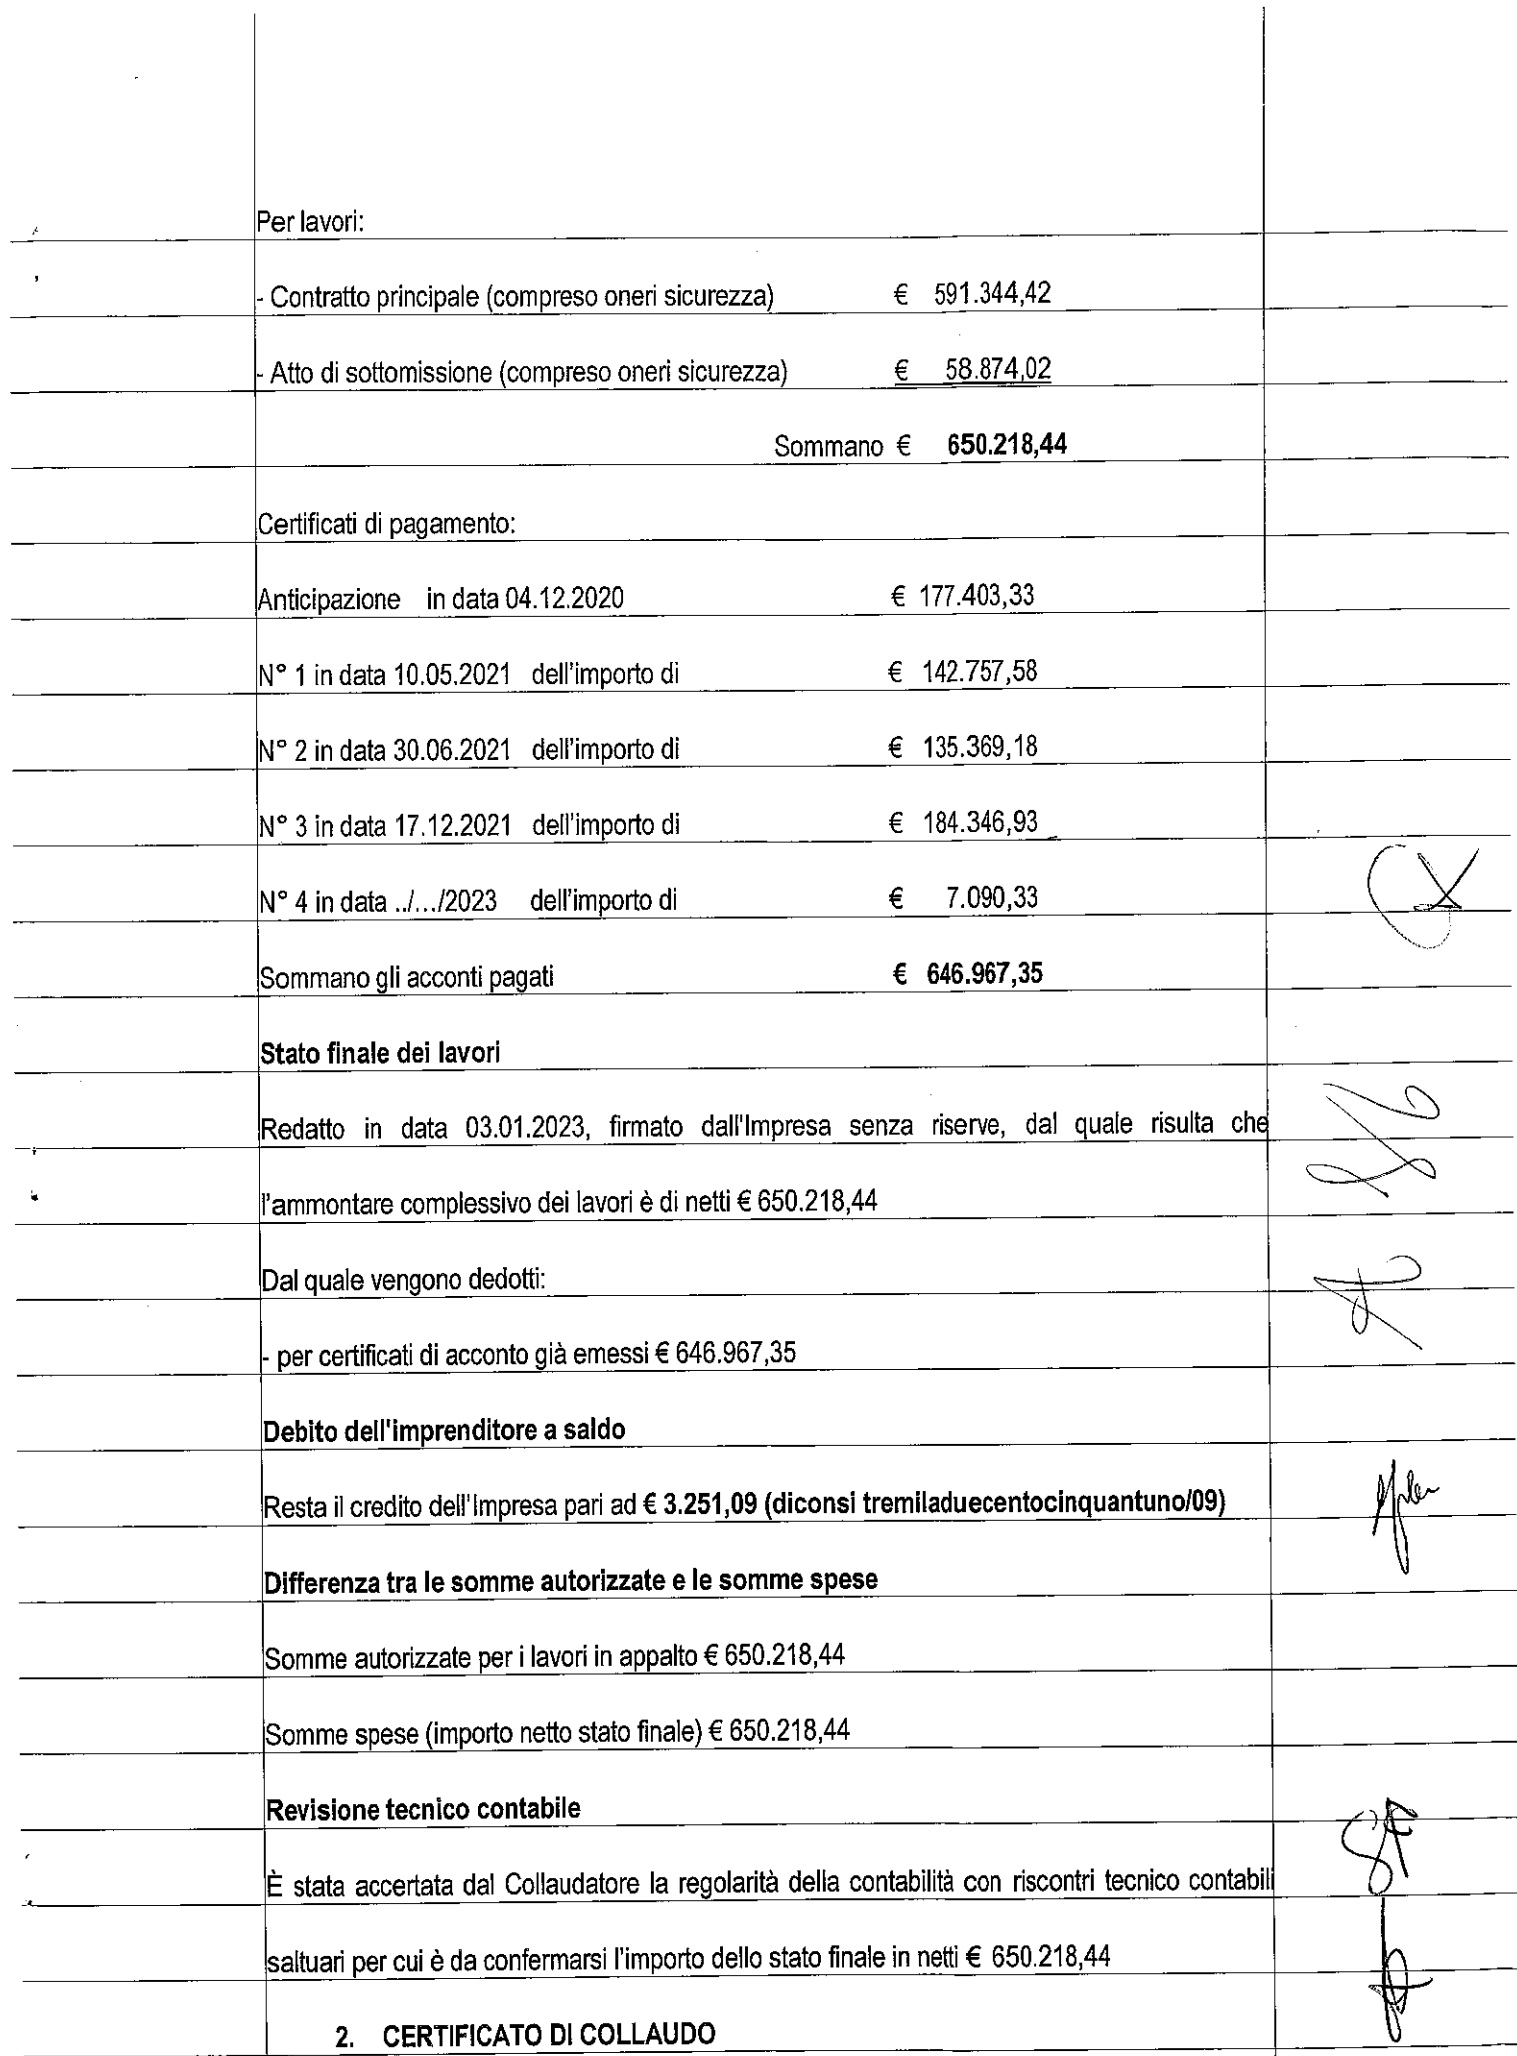 Per lavori:
- Contratto principale (compreso oneri sicurezza) € 591.344,42
- Atto di sottomissione (compreso oneri sicurezza) € 58.874,02
Sommano € 650.218,44
Certificati di pagamento:
Anticipazione in data 04.12.2020 € 177.403,33
N° 1 in data 10.05.2021 dell'importo di € 142.757,58
N° 2 in data 30.06.2021 dell'importo di € 135.369,18
N° 3 in data 17.12.2021 dell'importo di € 184.346,93
N° 4 in data ../.../2023 dell'importo di € 7.090,33
Sommano gli acconti pagati € 646.967,35
Stato finale dei lavori
Redatto in data 03.01.2023, firmato dall'Impresa senza riserve, dal quale risulta che
l'ammontare complessivo dei lavori è di netti € 650.218,44
Dal quale vengono dedotti:
- per certificati di acconto già emessi € 646.967,35
Debito dell'imprenditore a saldo
Resta il credito dell'Impresa pari ad € 3.251,09 (diconsi tremiladuecentocinquantuno/09)
Differenza tra le somme autorizzate e le somme spese
Somme autorizzate per i lavori in appalto € 650.218,44
Somme spese (importo netto stato finale) € 650.218,44
Revisione tecnico contabile
È stata accertata dal Collaudatore la regolarità della contabilità con riscontri tecnico contabili
saltuari per cui è da confermarsi l'importo dello stato finale in netti € 650.218,44
2. CERTIFICATO DI COLLAUDO